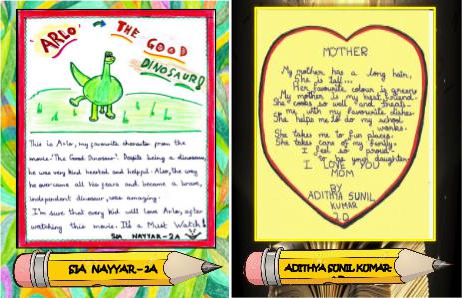 'ARLO' → THE GOOD
DINOSAUR!
This is Arlo, my favourite character from the
movie-'The Good Dinosaur'. Despite being a dinosaur,
he was very kind hearted and helpful. Also, the way
he overcame all his fears and became a brave,
independent dinosaur, was amazing.
I'm sure that every kid will love Arlo, after
watching this movie. It's a Must Watch!
SIA NAYYAR-2A
SIA NAYYAR-2A
MOTHER
My mother has a long hair,
She is tall...
Her favourite colour is green
My mother is my best friend.
She cooks so well and treats
me with my favourite dishes.
She helps me to do my school
works.
She takes me to fun places.
She takes care of my family.
I feel so proud
to be your daughter
I LOVE YOU
MOM
BY
ADITHYA SUNIL
KUMAR
2.D
ADITHYA SUNIL KUMAR-